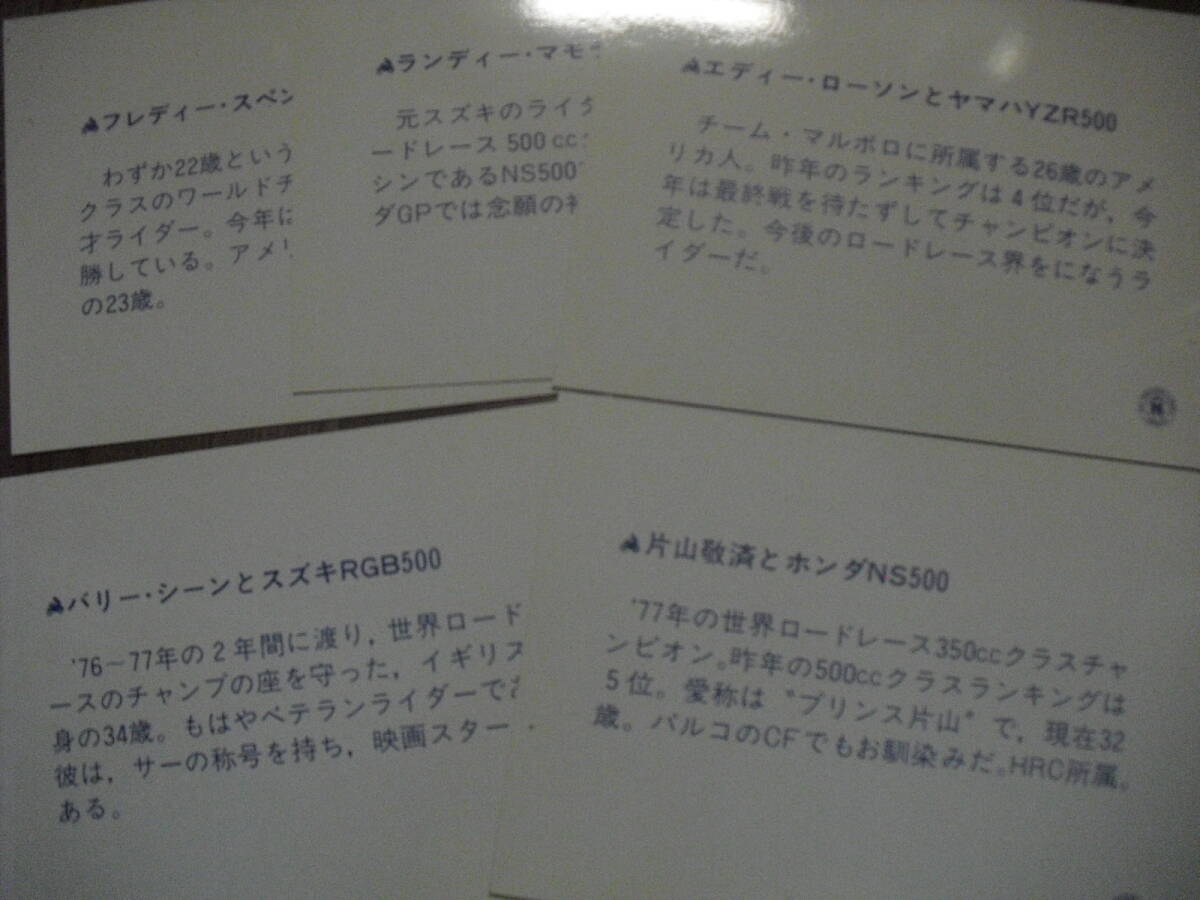 フレディー・スペン
わずか22歳という
クラスのワールドチ
才ライダー。今年に
勝している。アメリ
の23歳。
ランディー・マモ
元スズキのライダ
ードレース500cc
シンであるNS500
ダGPでは念願の
エディー・ローソンとヤマハYZR500
チーム・マルボロに所属する26歳のアメ
リカ人。昨年のランキングは4位だが,今
年は最終戦を待たずしてチャンピオンに決
定した。今後のロードレース界をになうラ
イダーだ。
バリー・シーンとスズキRGB500
'76〜77年の2年間に渡り,世界ロード
ースのチャンプの座を守った,イギリス
身の34歳。もはやベテランライダーで
彼は,サーの称号を持ち,映画スター
ある。
片山敬済とホンダNS500
'77年の世界ロードレース350ccクラスチャ
ンピオン。昨年の500ccクラスランキングは
5位。愛称は“プリンス片山”で,現在32
歳。パルコのCFでもお馴染みだ。HRC所属。